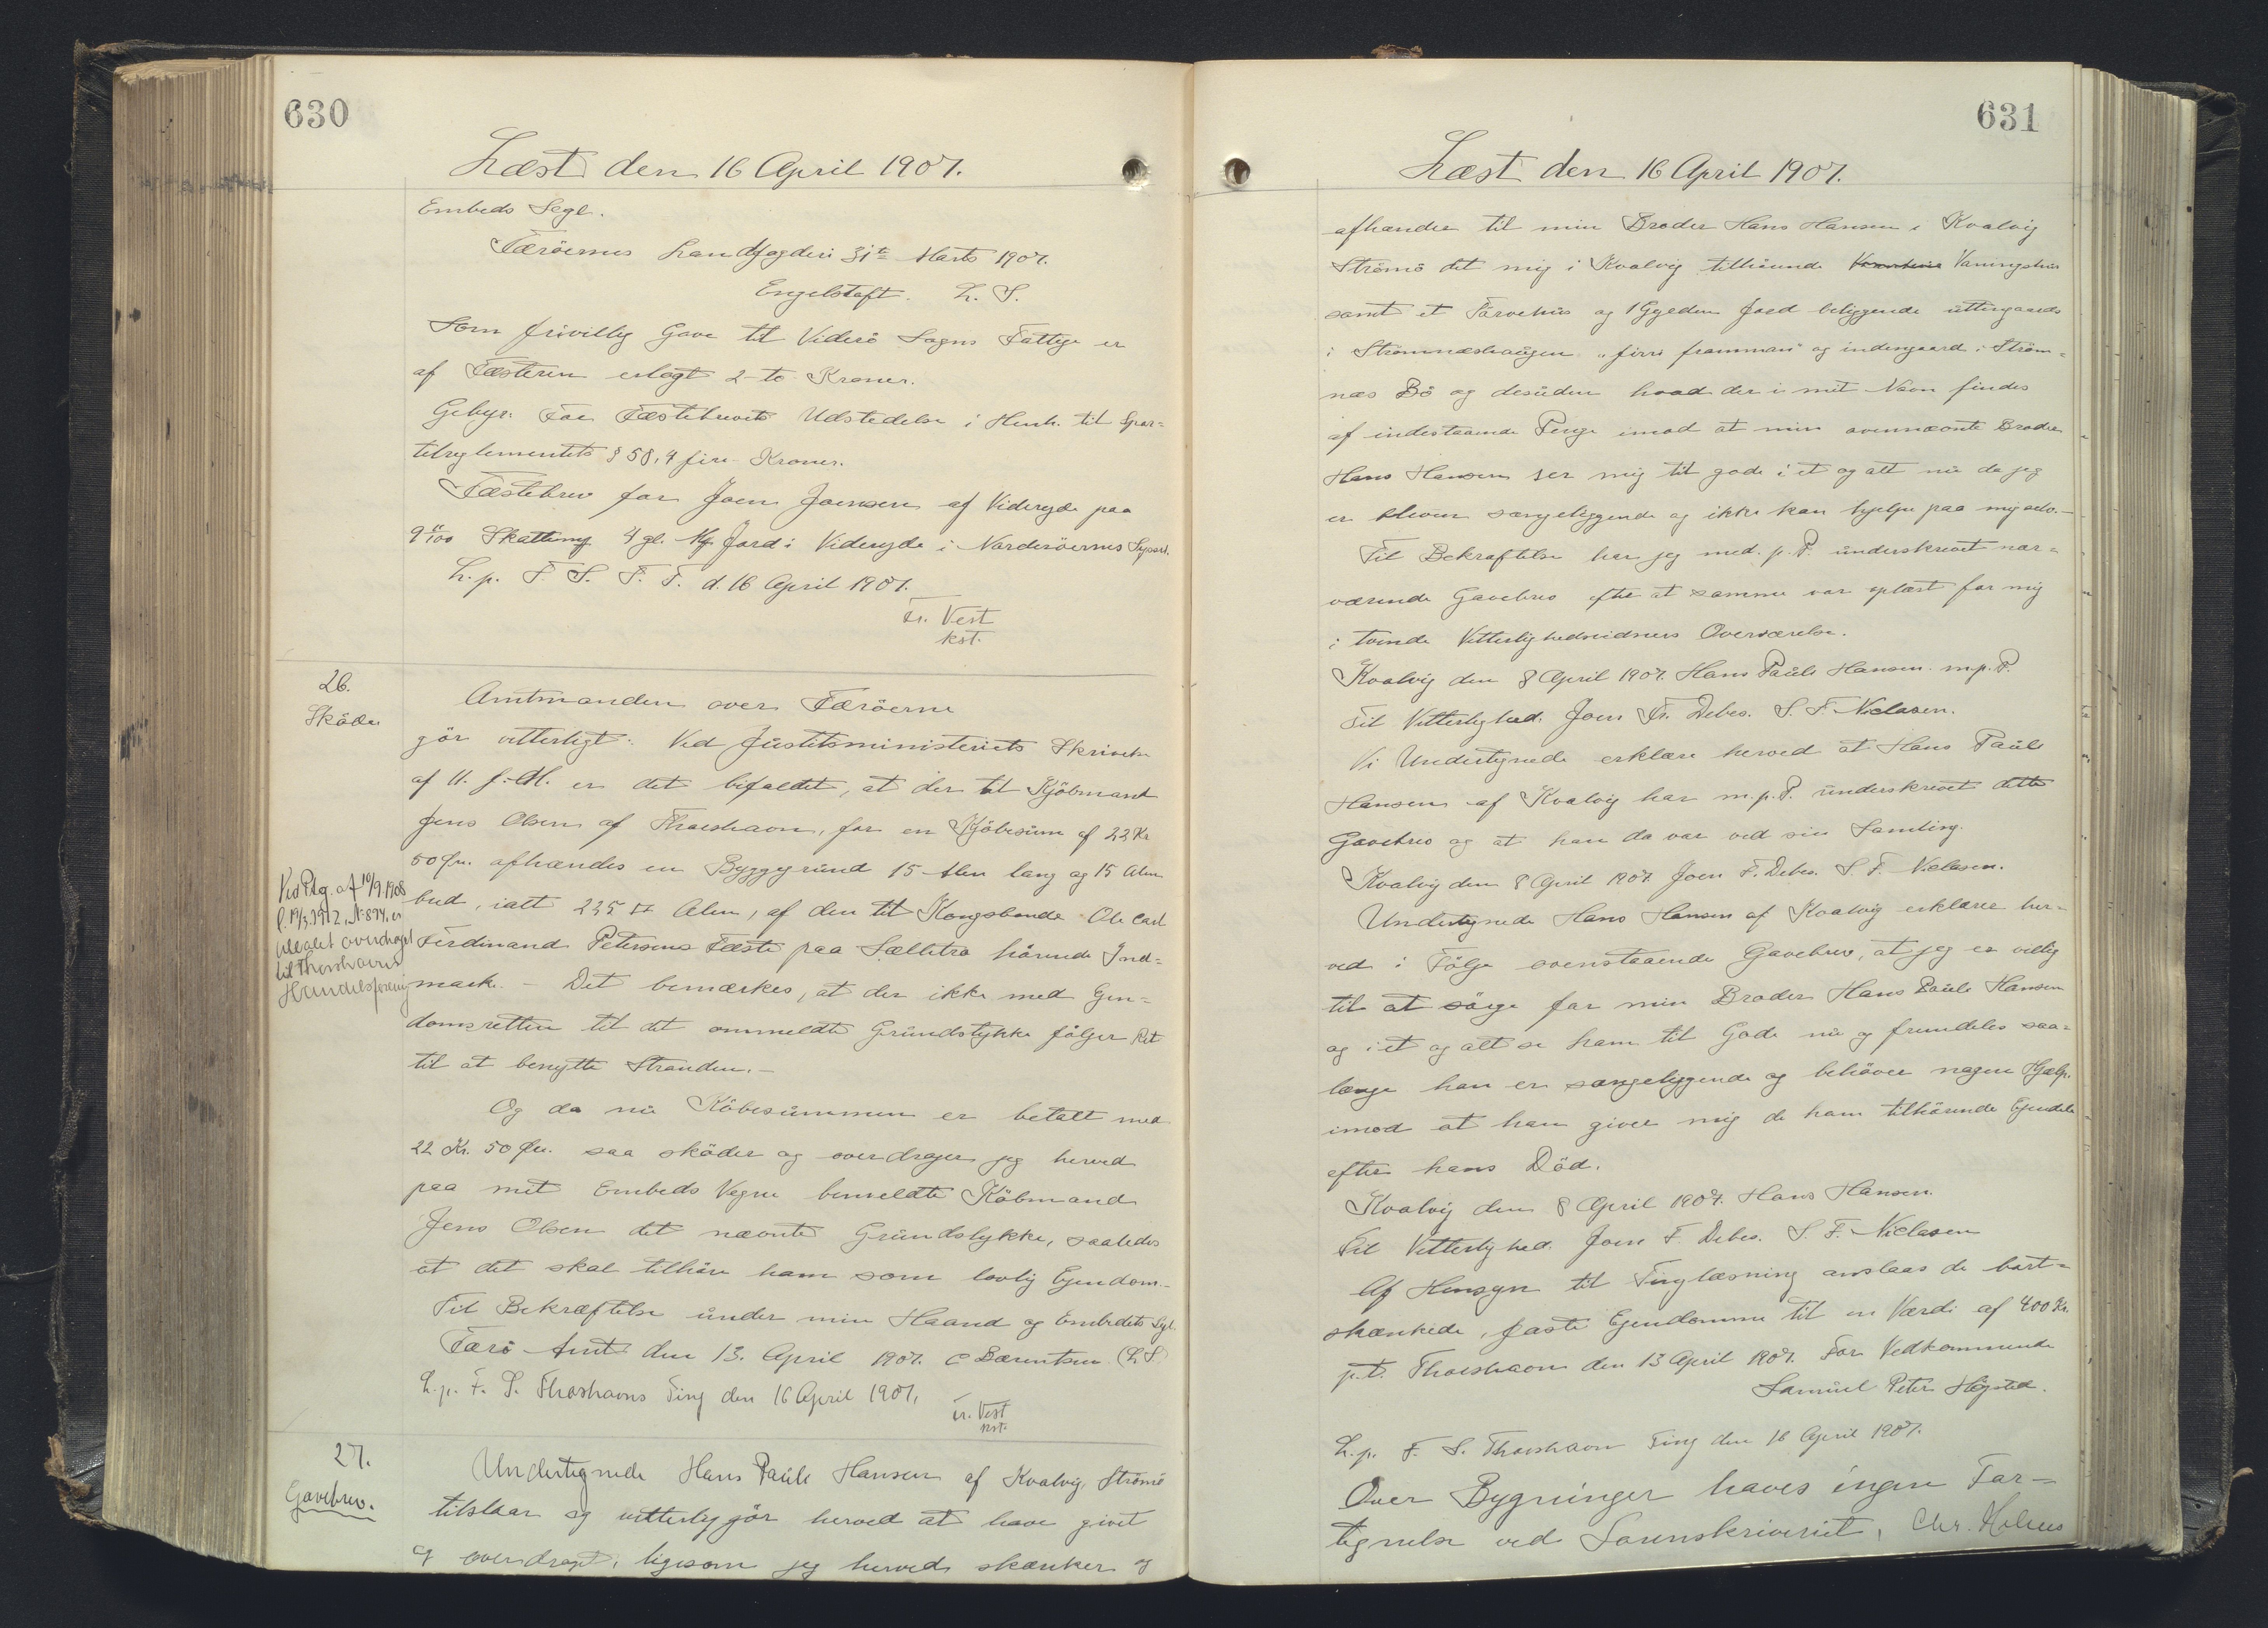 630
Læst den 16 April 1907.
Embeds Segl.
Færöernes Landfogderi 31te Marts 1907.
Engelstoft. L. S.
Som frivillig Gave til Viderö Sogns Fattige er
af Fæsteren erlagt 2 - to - Kroner.
Gebyr: For Fæstebrevets Udstedelse i Henh. til Spor=
telreglementets § 58, 4 fire - Kroner.
Fæstebrev for Joen Joensen af Videreide paa
Skatten 4 gl. Kg. Jord i Videreide i Norderöernes Syssel.
L. p. F. S. T. T. d. 16 April 1907.
Fr. Vest
kst.
26.
Sköde
Amtmanden over Færöerne
gör vitterligt: Ved Justitsministeriets Skrivelse
af 11. f. M. er det bifaldet, at der til Kjöbmand
Jens Olsen af Thorshavn, for en Kjöbesum af 22 Kr
50 Öre. afhændes en Byggegrund 15 Alen lang og 15 Alen
bred, ialt 225 □ Alen, af den til Kongsbonde Ole Carl
Ferdinand Petersens Fæste paa Sælletra hörende Ind=
mark. - Det bemærkes, at der ikke med Ejen=
domsretten til det ommeldte Grundstykke fölger Ret
til at benytte Stranden. -
Ved Ptg. af 10/9 1908
l. 19/3 1912, N: 894, er
arealet overdraget
til Thorshavns
Handelsforening
Og da nu Köbesummen er betalt med
22 Kr. 50 Öre. saa sköder og overdrager jeg herved
paa mit Embeds Vegne bemeldte Köbmand
Jens Olsen det nævnte Grundstykke, saaledes
at det skal tilhöre ham som lovlig Ejendom. -
Til Bekræftelse under min Haand og Embedets Sgl.
Færö Amt den 13. April 1907. C Bærentsen (L. S.)
L. p. F. S. Thorshavns Ting den 16 April 1907,
Fr. Vest
kst.
27.
Gavebrev.
Undertegnede Hans Pauli Hansen af Kvalvig, Strömö
tilstaar og vitterliggör herved at have givet
og overdraget, ligesom jeg herved skænker og
631
Læst den 16 April 1907.
afhænder til min Broder Hans Hansen i Kvalvig
Strömö det mig i Kvalvig tilhörende Vaningshus
samt et Törvehus og 1 Gylden Jord beliggende uttengaards
i Strömnæshaugen "firi framman" og indengaard i Ström=
næs Bö og desuden hvad der i mit Navn findes
af indestaaende Penge imod at min ovennævnte Broder
Hans Hansen ser mig til gode i et og alt nu da jeg
er bleven sængeliggende og ikke kan hjelpe paa mig selv. -
Til Bekræftelse har jeg med. p. P. underskrevet nær=
værende Gavebrev efter at samme var oplæst for mig
i tvende Vitterlighedsvidners Overværelse.
Kvalvig den 8 April 1907. Hans Pauli Hansen. m. p. P.
Til Vitterlighed. Joen Fr. Debes. S. F. Niclasen.
Vi Undertegnede erklære herved at Hans Pauli
Hansen af Kvalvig har m. p. P. underskrevet dette
Gavebrev og at han da var ved sin Samling.
Kvalvig den 8 April 1907. Joen F. Debes. S. F. Niclasen.
Undertegnede Hans Hansen af Kvalvig erklærer her=
ved i Fölge ovenstaaende Gavebrev, at jeg er villig
til at sörge for min Broder Hans Pauli Hansen
og i et og alt se ham til Gode nu og fremdeles saa=
længe han er sængeliggende og behöver nogen Hjælp.
imod at han giver mig de ham tilhörende Ejendele
efter hans Död.
Kvalvig den 8 April 1907. Hans Hansen.
Til Vitterlighed. Joen F. Debes. S. F. Niclasen
Af Hensyn til Tinglæsning anslaas de bort=
skænkede, faste Ejendomme til en Værdi af 400 Kr.
p.t. Thorshavn den 13 April 1907. For Vedkommende
Samuel Peter Högsted.
L. p. F. S. Thorshavn Ting den 16 April 1907.
Over Bygninger haves ingen For=
tegnelse ved Sorenskriveriet, Chr. Holm